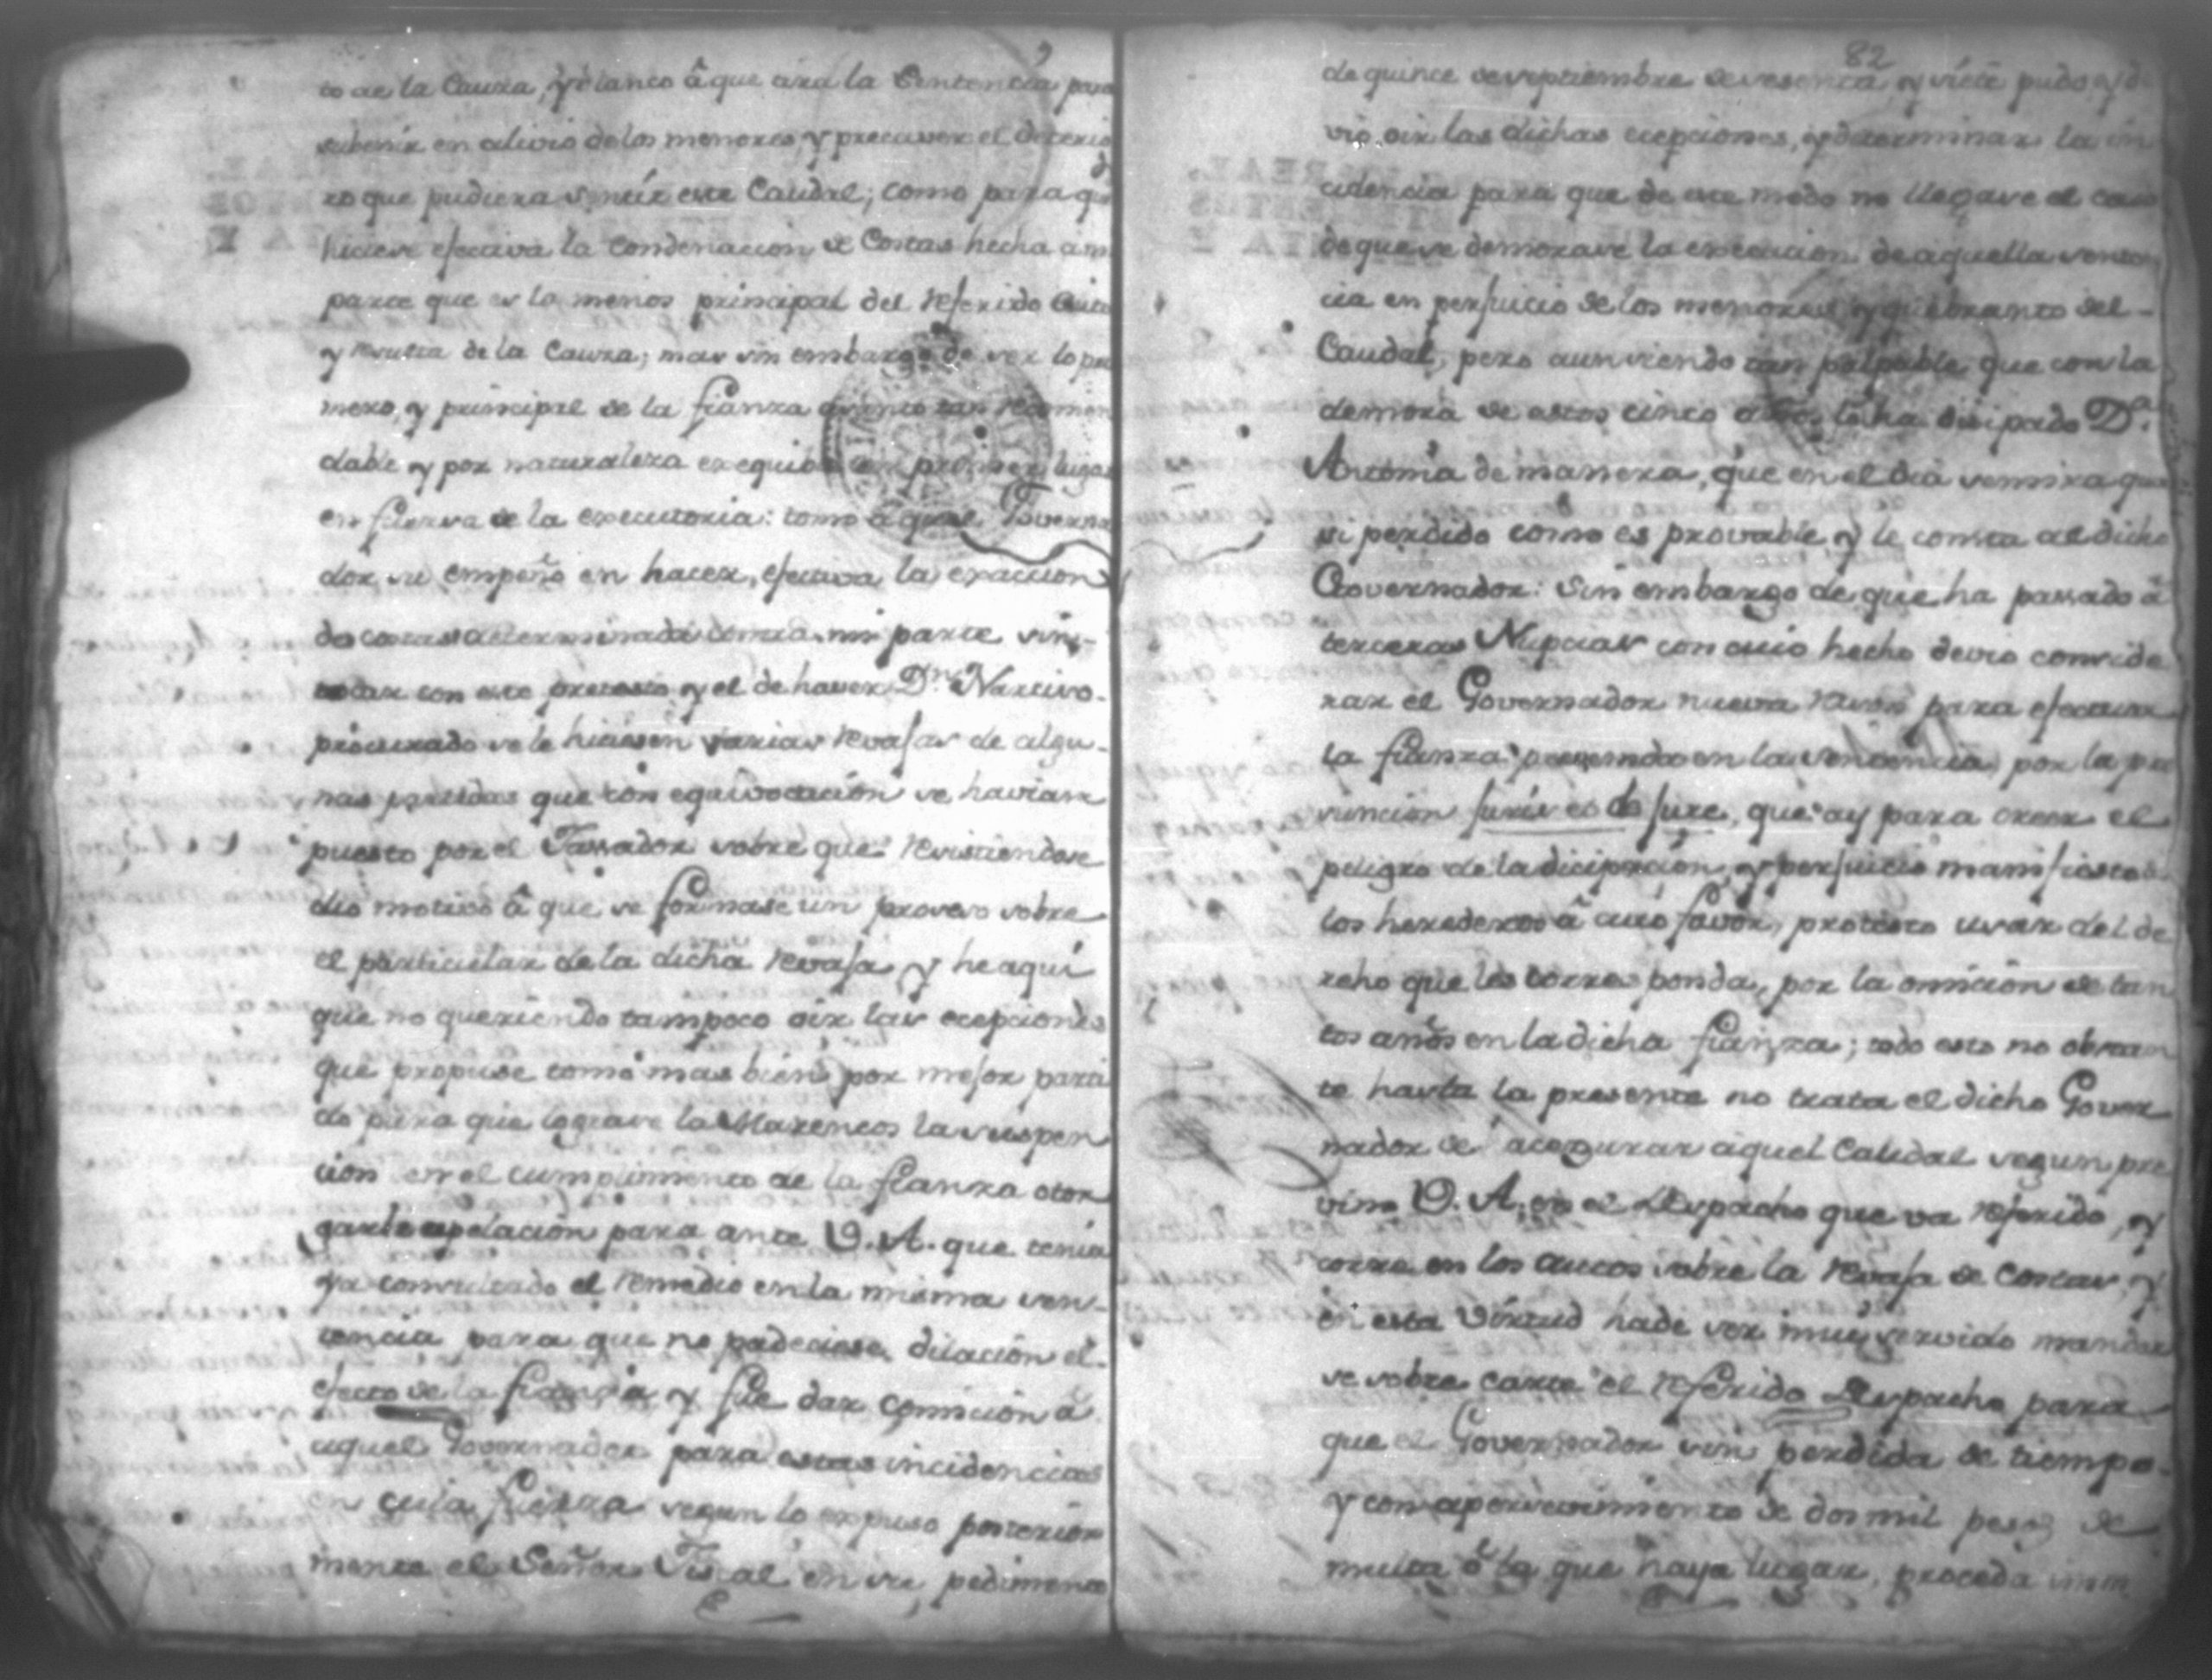 to de la Causa, y blanco â que tira la Sentencia para
subenir en alivio de los menores, y precaver el deterio
ro que pudiera sentir este Caudal; como para q.e
hiciese efectiva la Condenacion de Costas hecha a mi
parte que es lo menos principal del referido
y resulta de la Causa; mas sin embargo de ser lo pri
mero, y principal de la fianza punto tan recomen
dable y por naturaleza exequible en primer lugar
en fuerza de la executoria: tomô aquel Governa
dor su empeño en hacer, efectiva la exaccion
de costas determinada contra mi parte sin,-
con este pretesto y el de haver D.n Narciso-
procurado se le hiciesen varias revajas de algu-
nas partidas que con equivocación se havian
puesto por el Tassador sobre que resistiendose
dio motivo â que se formase un proceso sobre
el particular de la dicha revaja, y he aqui
que no queriendo tampoco oir las ecepciones
que propuse tomó mas bien por mejor parti
do para que lograse la Marencos la suspen
cion en el cumplimento de la fianza otor
garle apelacion para ante V. A. que tenia
ya considerado el remedio en la misma sen-
tencia para que no padeciese dilación el-
efecto de la fianza y fue dar comicion â
aquel Governador para estas incidencias
en cuia fuerza segun lo expuso posterior
mente el Señor Fiscal en su pedimento
82
de quince de septiembre de sesenta, y siete pudo, y de
vió oir las dichas ecepciones, y determinar la in
cidencia para que de este modo no llegase el caso
de que se demorase la execucion de aquella senten
cia en perjuicio de los menores y quebranto del-
Caudal, pero aun viendo tan palpable que con la
demora de estos cinco años lo ha disipado D.a
Antonia de manera, que en el dia se mira qua
si perdido como es provable y le consta al dicho
Governador: Sin embargo de que ha passado â
terceras Nupcias con cuio hecho devio conside
rar el Governador nueva razon para efectuar
la fianza prevenida en la sentencia, por la pre
suncion juris et de jure, que ay para creer el
peligro de la dicipacion, y perjuicio manifiesto de
los herederos â cuio favor, protesto usar del de
recho que les corresponda, por la omicion de tan
tos años en la dicha fianza; todo esto no obstan
te hasta la presente no trata el dicho Gover
nador de acegurar aquel Caudal segun pre
vino V. A. en el Despacho que va referido, y
corre en los autos sobre la revaja de costas, y
en esta Virtud hade ser mui servido mandar
se sobre carte el referido Despacho para
que el Governador sin perdida de tiempo-
y con apercevimiento de dos mil pesos de
multa ô la que haya lugar, proceda inm